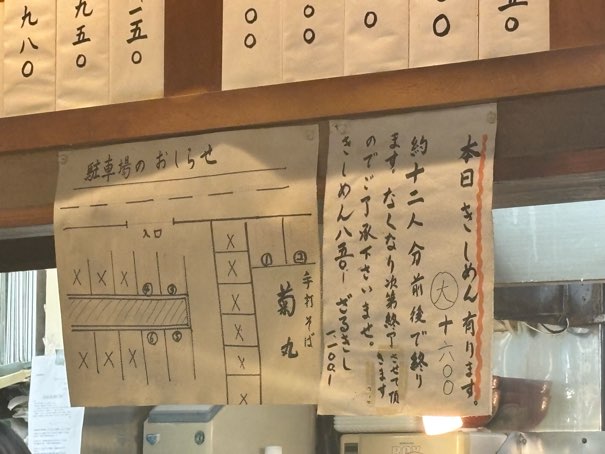 九八〇
九五〇
一五〇
〇〇
〇〇
〇
〇〇
〇
五〇
駐車場のおしらせ
入口
① ②
④ ③
⑥ ⑤
手打そば
菊丸
本日きしめん有ります。
大 +600
約十二人分前後で終り
ます。なくなり次第終了させて頂きます
のでご了承下さいませ。
きしめん八五〇- ざるきし一一〇〇-